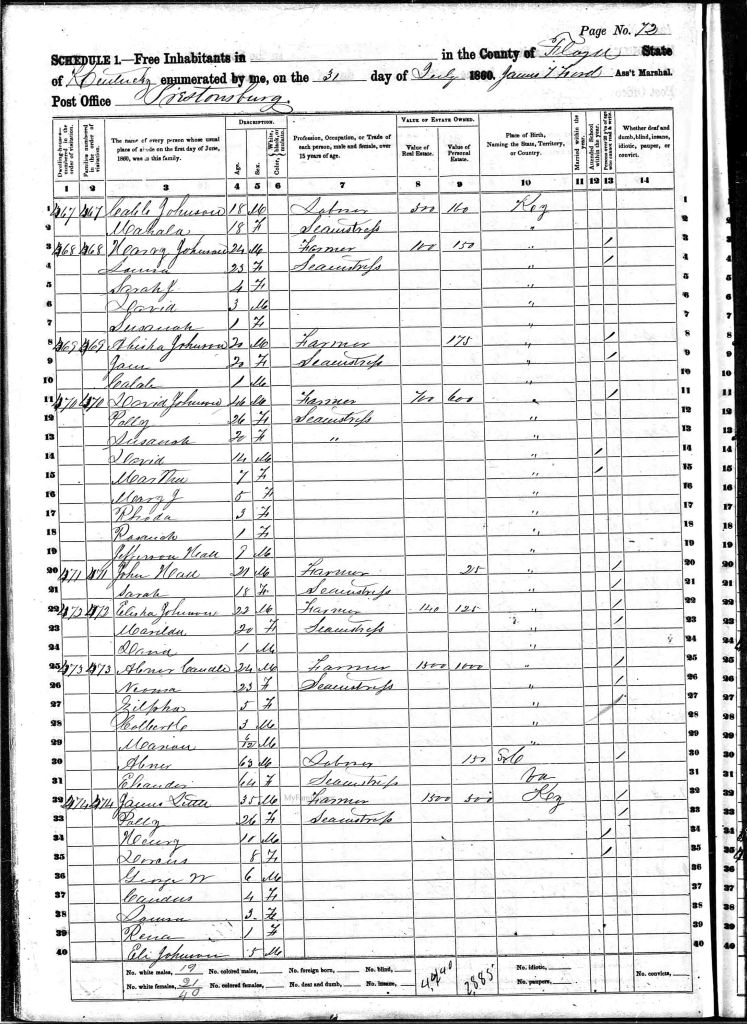 Page No. 72
SCHEDULE 1.—Free Inhabitants in in the County of Floyd State
of Kentucky enumerated by me, on the 31 day of July 1860. James Ass't Marshal.
Post Office Prestonsburg.
Dwelling-houses—numbered in the order of visitation. Families numbered in the order of visitation. The name of every person whose usual place of abode on the first day of June, 1860, was in this family. DESCRIPTION. Age. Sex. Color, White, black, or mulatto. Profession, Occupation, or Trade of each person, male and female, over 15 years of age. VALUE OF ESTATE OWNED. Value of Real Estate. Value of Personal Estate. Place of Birth, Naming the State, Territory, or Country. Married within the year. Attended School within the year. Persons over 20 y'rs of age who cannot read & write. Whether deaf and dumb, blind, insane, idiotic, pauper, or convict.
1 2 3 4 5 6 7 8 9 10 11 12 13 14
1 467 467 Johnson 18 M Labrer 300 100 Key 1
2 Mahala 18 F Seamstress " 2
3 468 468 Henry Johnson 24 M Farmer 100 150 " / 3
4 Louisa 23 F Seamstress " / 4
5 Sarah J 4 F " 5
6 David 3 M " 6
7 Susanah 1 F " 7
8 469 469 Abisha Johnson 20 M Farmer 175 " / 8
9 Jane 20 F Seamstress " / 9
10 1 M " 10
11 470 470 David Johnson 46 M Farmer 700 600 " / 11
12 Polly 26 F Seamstress " 12
13 Susanah 20 F " " 13
14 David 14 M " / 14
15 Martha 7 F " / 15
16 Mary J 5 F " 16
17 Rhoda 3 F " 17
18 1 F " 18
19 Jefferson Hall M " 19
20 471 471 John Hall 21 M Farmer 25 " / 20
21 Sarah 18 F Seamstress " / 21
22 472 472 Elisha Johnson 22 M Farmer 140 125 " / 22
23 20 F Seamstress " / 23
24 David 1 M " 24
25 473 473 Abner Caudle 24 M Farmer 1500 1000 " / 25
26 23 F Seamstress " / 26
27 Zilpha 5 F " / 27
28 3 M " 28
29 Marion 6/12 M " 29
30 Abner 63 M Labrer 150 / 30
31 64 F Seamstress Va / 31
32 474 474 James 35 M Farmer 1500 500 Key / 32
33 Polly 26 F Seamstress / 33
34 Henry 10 M / 34
35 Dorcus 8 F / 35
36 George W 6 M 36
37 4 F 37
38 Louisa 3 F 38
39 Rena 1 F 39
40 Eli Johnson 5 M 40
No. white males, 19 No. colored males, No. foreign born, No. blind, 4,440 2885 No. idiotic, No. convicts,
No. white females, 21 No. colored females, No. deaf and dumb, No. insane, No. paupers,
40